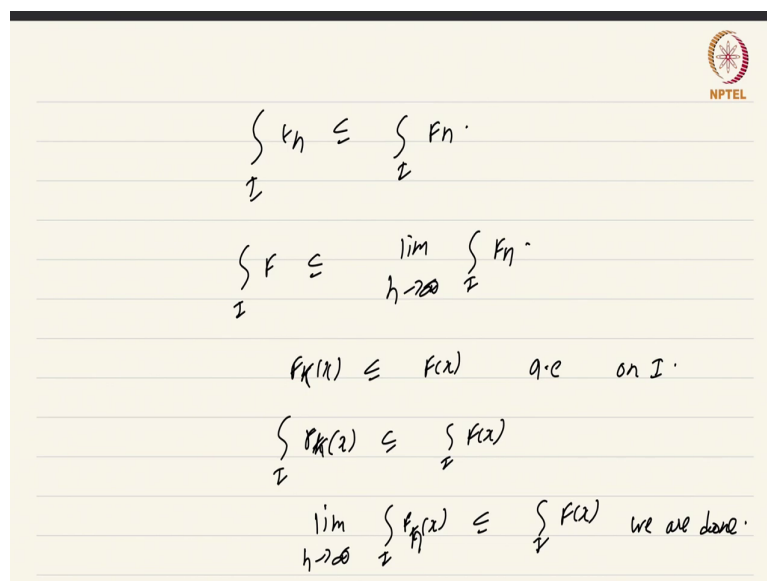 NPTEL
∫_I t_n ≤ ∫_I F_n.
∫_I F ≤ lim_{n→∞} ∫_I F_n.
F_k(x) ≤ F(x) a.e on I.
∫_I F_k(x) ≤ ∫_I F(x)
lim_{n→∞} ∫_I F_n(x) ≤ ∫_I F(x) we are done.